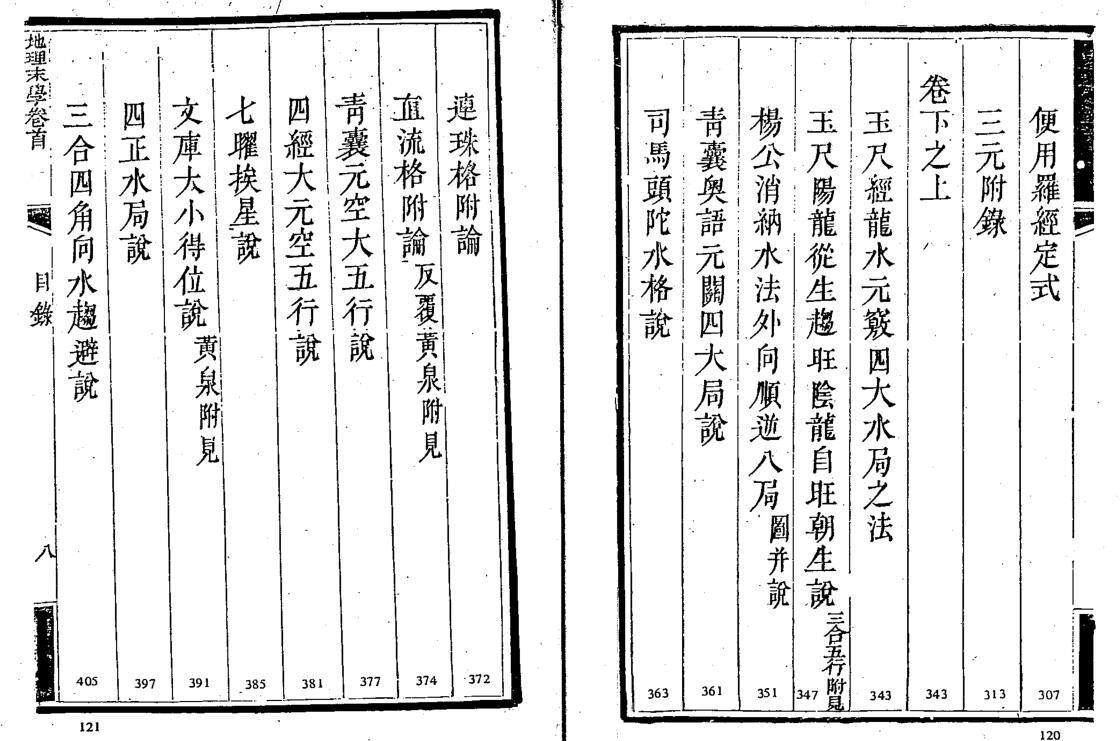 便用羅經定式
307
三元附錄
313
卷下之上
343
玉尺經龍水元竅四大水局之法
343
玉尺陽龍從生趨旺陰龍自旺朝生說 三合五行附見
347
楊公消納水法外向順逆八局 圖并說
351
青囊奧語元關四大局說
361
司馬頭陀水格說
363
120
連珠格附論
372
直流格附論 反覆黃泉附見
374
青囊元空大五行說
377
四經大元空五行說
381
七曜挨星說
385
文庫大小得位說 黃泉附見
391
四正水局說
397
三合四角向水趨避說
405
地理末學卷首
目錄
八
121